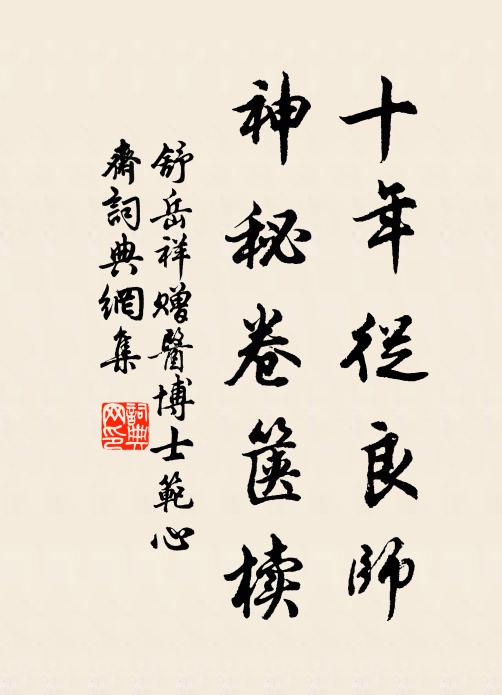 十年從良師
神秘卷篋櫝
舒岳祥贈醫博士範心
齋詞典網集
詞典网印